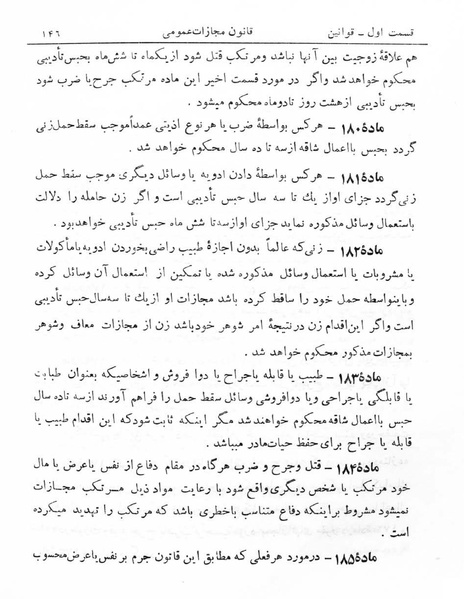 قسمت اول ـ قوانین قانون مجازات عمومی ۱۴۶
هم علاقهٔ زوجیت بین آنها نباشد ومرتکب قتل شود از یکماه تا شش‌ماه بحبس تأدیبی
محکوم خواهد شد واگر در مورد قسمت اخیر این ماده مرتکب جرح یا ضرب شود
بحبس تأدیبی از هشت روز تا دو ماه محکوم میشود .
مادهٔ ۱۸۰ ـ هر کس بواسطهٔ ضرب یا هر نوع اذیتی عمداً موجب سقط حمل زنی
گردد بحبس با اعمال شاقه از سه تا ده سال محکوم خواهد شد .
مادهٔ ۱۸۱ ـ هر کس بواسطهٔ دادن ادویه یا وسائل دیگری موجب سقط حمل
زنی گردد جزای او از یك تا سه سال حبس تأدیبی است و اگر زن حامله را دلالت
باستعمال وسائل مذکوره نماید جزای او از سه تا شش ماه حبس تأدیبی خواهد بود .
مادهٔ ۱۸۲ ـ زنی که عالماً بدون اجازهٔ طبیب راضی بخوردن ادویه یا مأکولات
یا مشروبات یا استعمال وسائل مذکوره شده یا تمکین از استعمال آن وسائل کرده
و باینواسطه حمل خود را ساقط کرده باشد مجازات او از یك تا سه سال حبس تأدیبی
است و اگر این اقدام زن در نتیجهٔ امر شوهر خود باشد زن از مجازات معاف و شوهر
بمجازات مذکور محکوم خواهد شد .
مادهٔ ۱۸۳ ـ طبیب یا قابله یا جراح یا دوا فروش و اشخاصیکه بعنوان طبابت
یا قابلگی یا جراحی و یا دوافروشی وسائل سقط حمل را فراهم آورند از سه تا ده سال
حبس با اعمال شاقه محکوم خواهند شد مگر اینکه ثابت شود که این اقدام طبیب یا
قابله یا جراح برای حفظ حیات مادر میباشد .
مادهٔ ۱۸۴ ـ قتل و جرح و ضرب هر گاه در مقام دفاع از نفس یا عرض یا مال
خود مرتکب یا شخص دیگری واقع شود با رعایت مواد ذیل مرتکب مجازات
نمیشود مشروط بر اینکه دفاع متناسب باخطری باشد که مرتکب را تهدید میکرده
است .
مادهٔ ۱۸۵ ـ در مورد هر فعلی که مطابق این قانون جرم بر نفس یا عرض محسوب